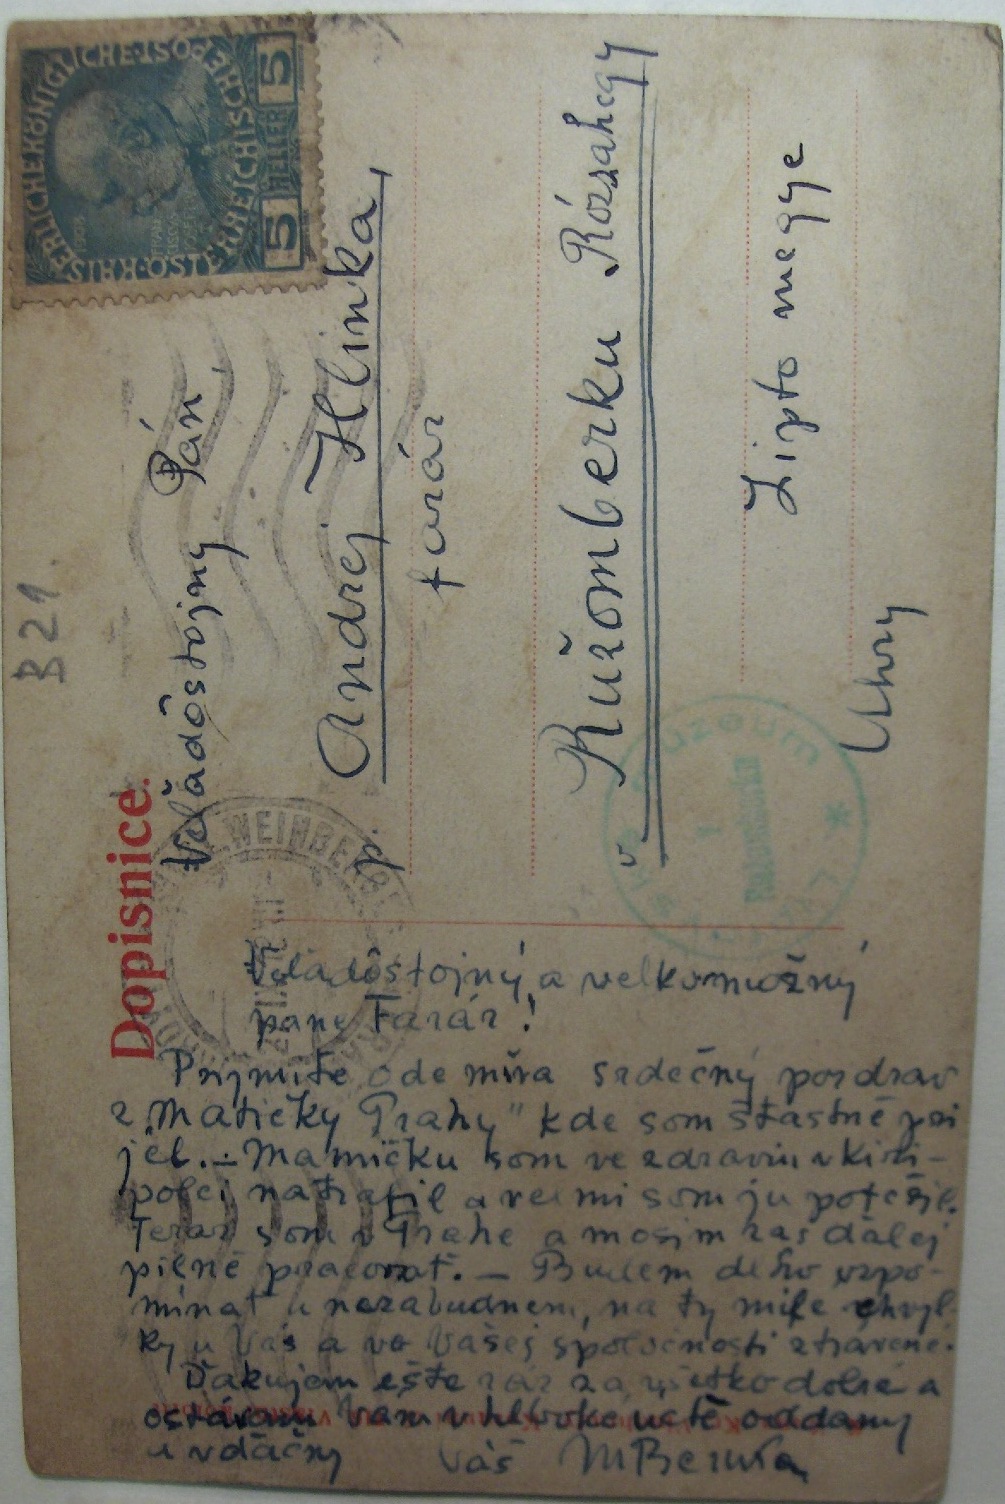 KAISERLICHE KÖNIGLICHE ÖSTERREICHISCHE POST
5 HELLER 5
B21
Dopisnice.
Veľadôstojný Pán
p. Andrej Hlinka,
farár
v Ružomberku Rózsahegy
Lipto megye
Uhry
WEINBERGE
muzeum
Veľadôstojný a velkomožný
pane Farár!
Prijmite ode mňa srdečný pozdrav
z "Matičky Prahy" kde som šťastně pri
jel. — Mamičku som ve zdraviu v Kirá-
polci natrafil a velmi som ju potešil.
Teraz som v Prahe a mosim zas ďalej
pilně pracovat. — Budem dlho vzpo-
minat a nezabudnem, na ty milé chvyl-
ky u Vás a vo Vašej spoločnosti ztravené.
Ďakujem ešte raz za všetko dobré a
ostávam Vám v hlboke uctě oddaný
a vďačný Váš M Benka